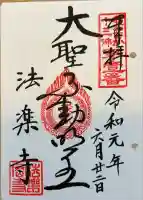 奉拝
大聖不動明王
法楽寺
令和元年
六月廿二日